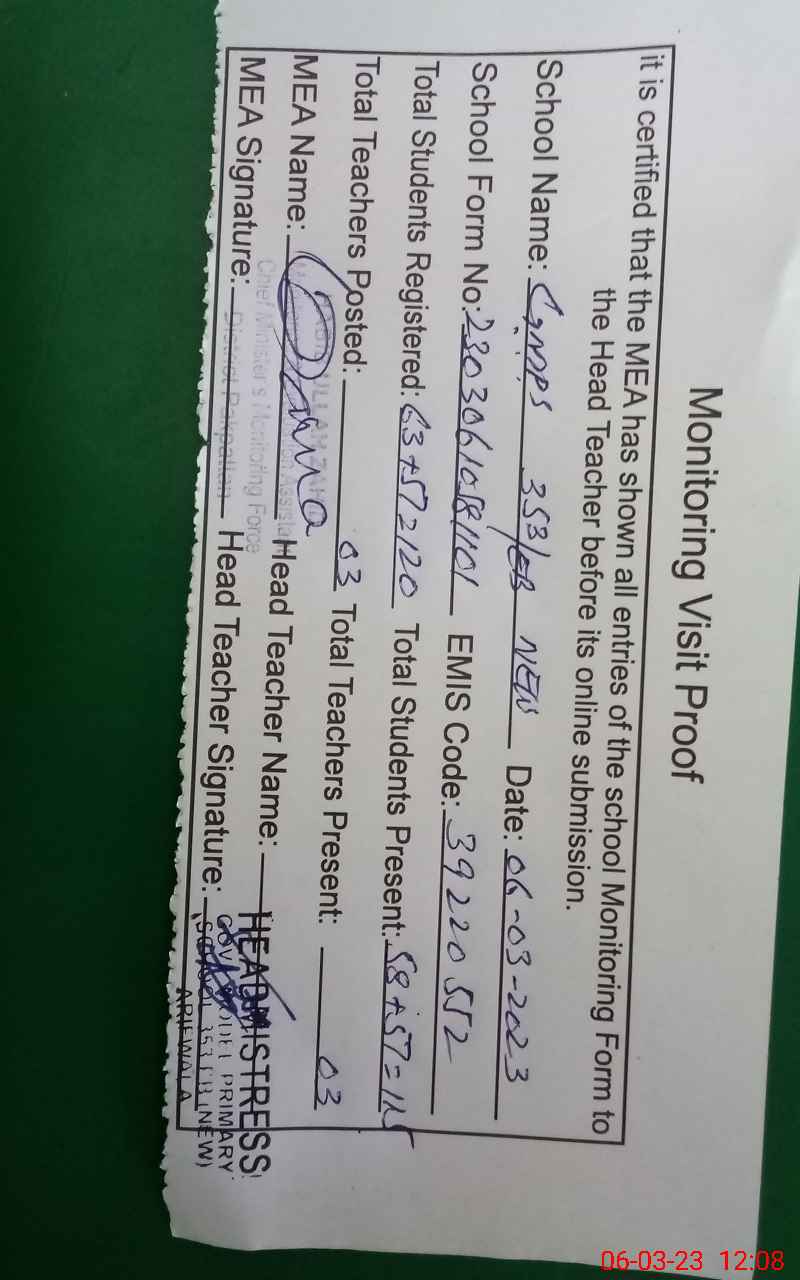 Monitoring Visit Proof
it is certified that the MEA has shown all entries of the school Monitoring Form to
the Head Teacher before its online submission.
School Name: GMPS 353/EB NEW Date: 06-03-2023
School Form No: 23030610581101 EMIS Code: 39220552
Total Students Registered: 63+57=120 Total Students Present: 58+57=115
Total Teachers Posted: 03 Total Teachers Present: 03
MEA Name: Head Teacher Name:
MEA Signature: Head Teacher Signature:
Chief Minister's Monitoring Force
District Pakpattan
HEADMISTRESS
GOV MODEL PRIMARY
SCHOOL 353 EB (NEW)
ARIFWALA
06-03-23 12:08